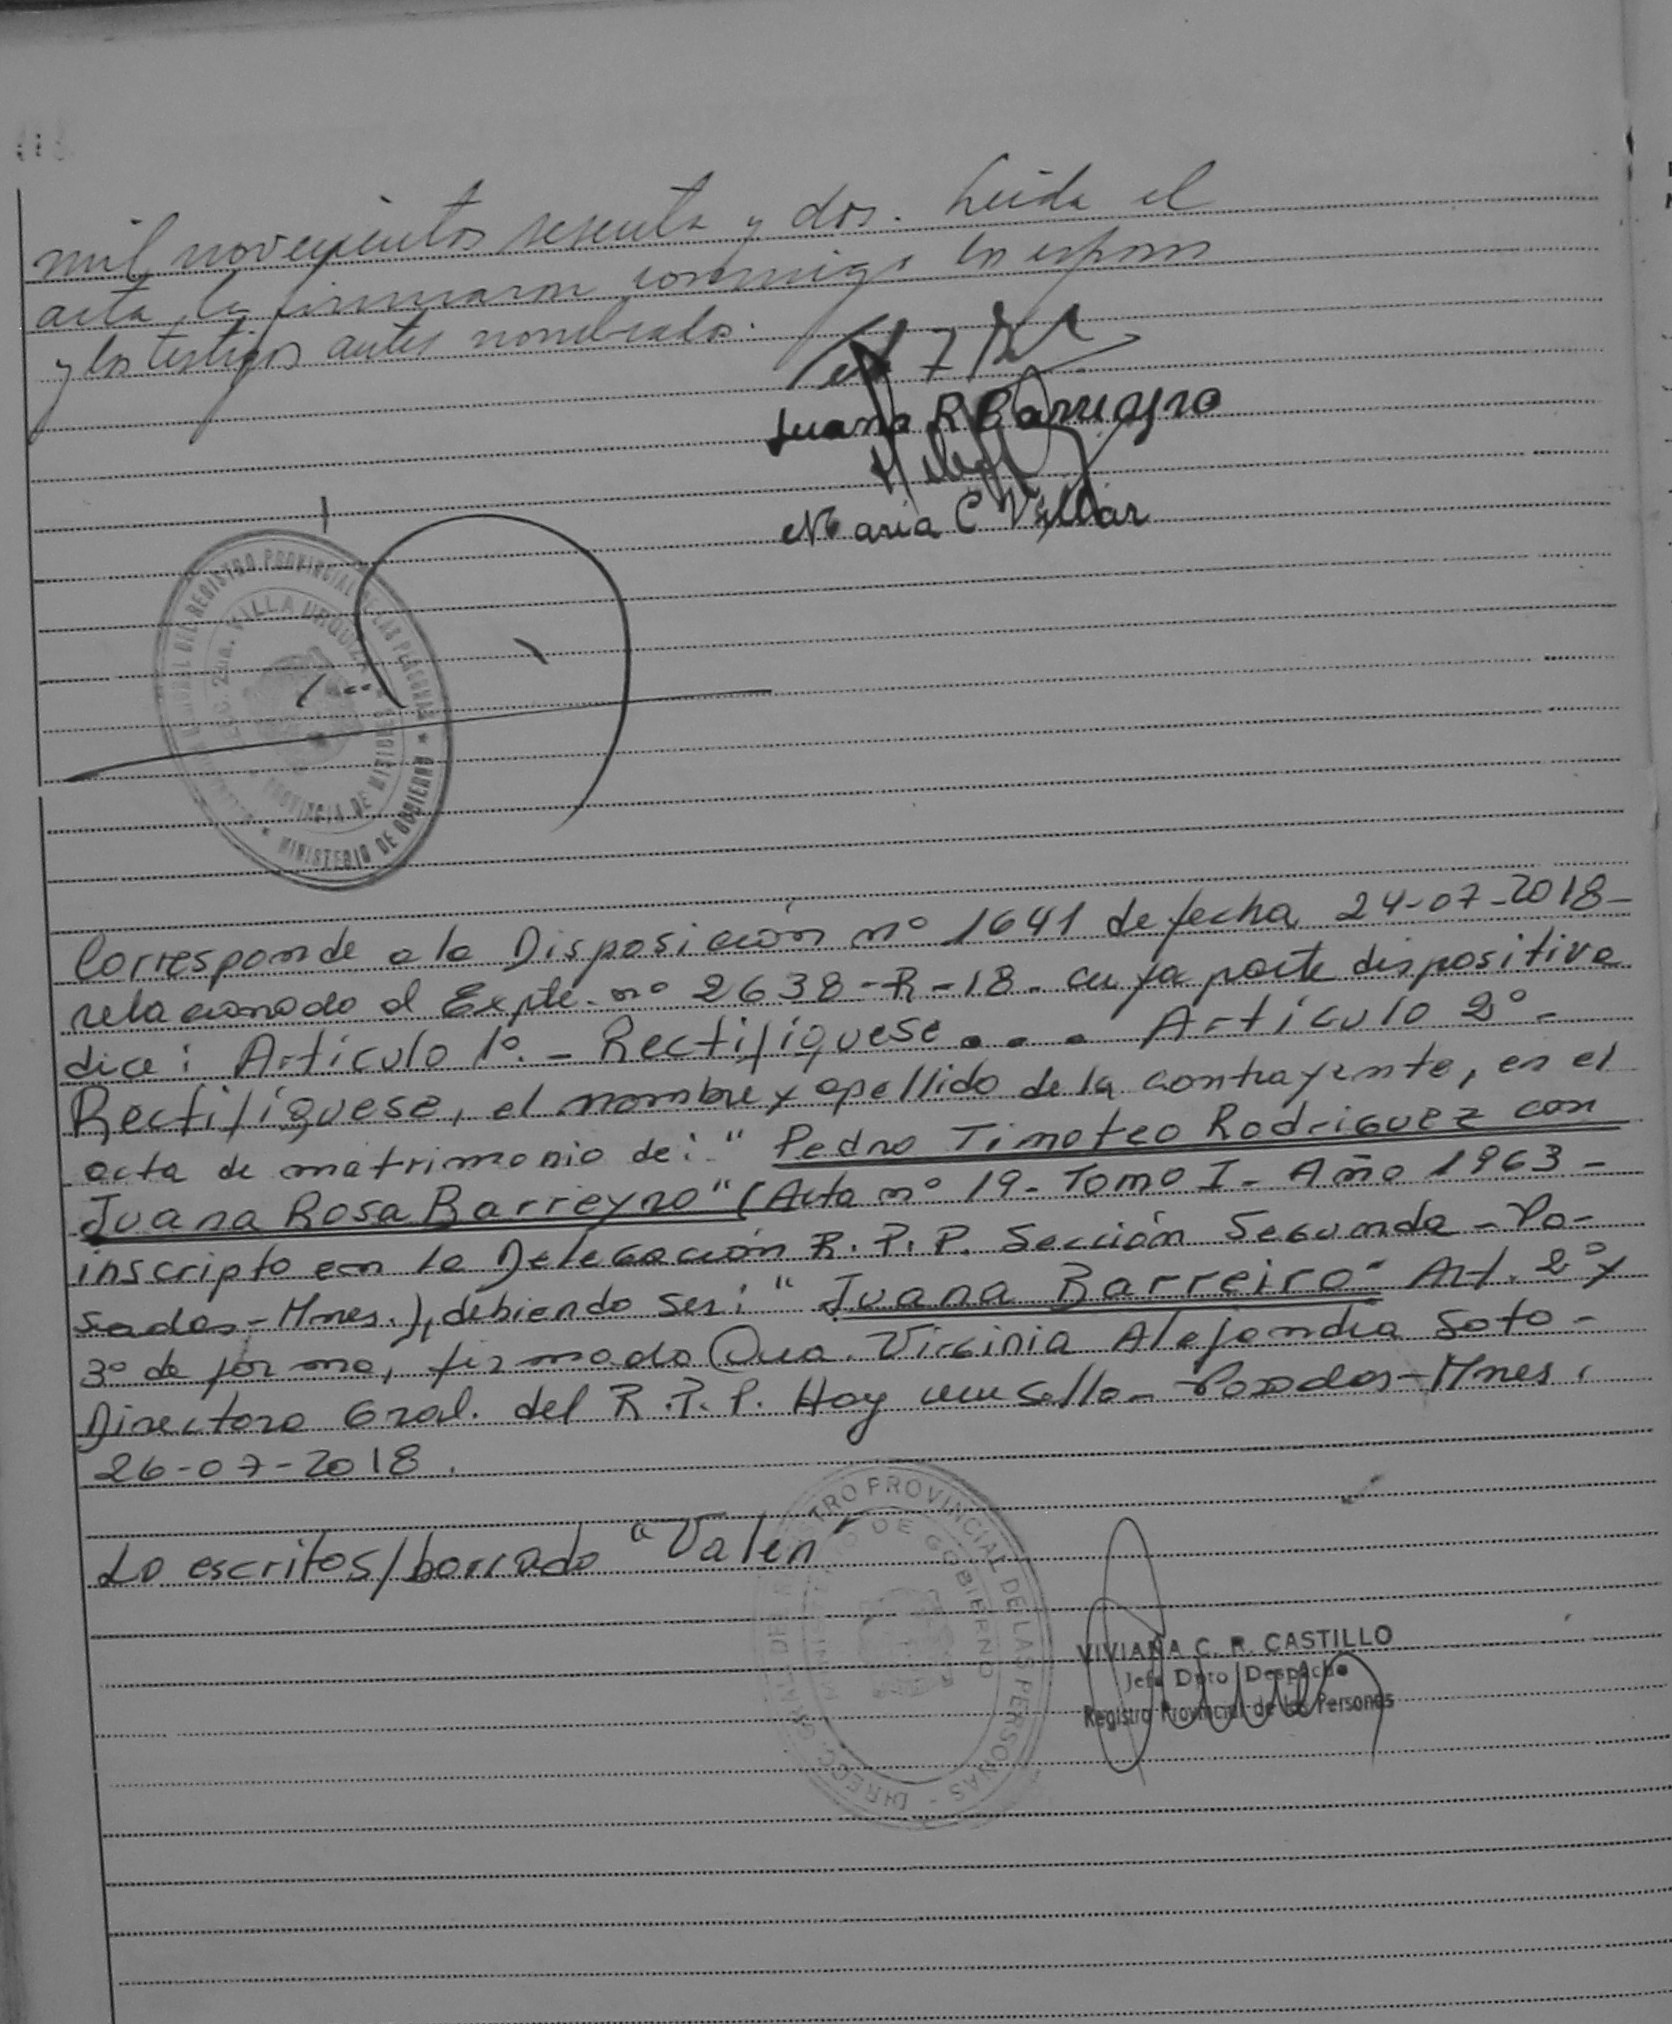 mil novecientos sesenta y dos. Leida el
acta, la firmaron conmigo los esposos
y los testigos antes nombrados.
Juana R Barreyro
Maria C Villar
DEL REGISTRO PROVINCIAL DE LAS PERSONAS * MINISTERIO DE GOBIERNO *
SECC. 2da. VILLA URQUIZA
PROVINCIA DE MISIONES
Corresponde a la Disposición nº 1641 de fecha 24-07-2018-
relacionado al Expte. nº 2638-R-18. cuya parte dispositiva
dice: Artículo 1º.- Rectifíquese.... Artículo 2º-
Rectifíquese, el nombre y apellido de la contrayente, en el
acta de matrimonio de: "Pedro Timoteo Rodriguez con
Juana Rosa Barreyro" (Acta nº 19- Tomo I- Año 1963-
inscripto en la Delegación R.P.P. Sección Segunda - Po-
sadas-Mnes.), debiendo ser: "Juana Barreiro" Art. 2º y
3º de forma, firmado Dra. Virginia Alejandra Soto-
Directora Gral. del R.P.P. Hay un sello- Posadas-Mnes.
26-07-2018.
Lo escritos/borrado "Valen"
DIRECC. GRAL. DEL REGISTRO PROVINCIAL DE LAS PERSONAS -
MINISTERIO DE GOBIERNO
VIVIANA C. R. CASTILLO
Jefa Dpto Despacho
Registro Provincial de las Personas